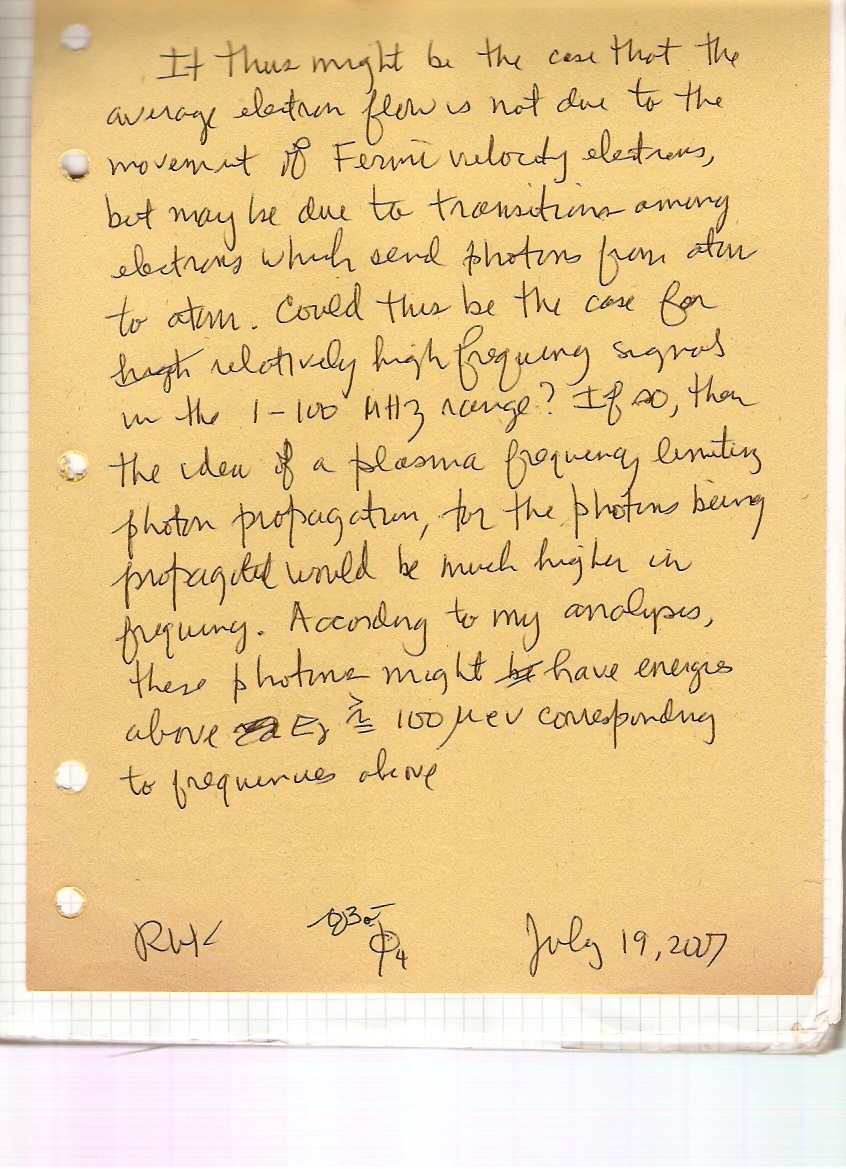 It thus might be the case that the
average electron flow is not due to the
movement of Fermi velocity electrons,
but may be due to transitions among
electrons which send photons from atom
to atom. Could this be the case for
high relatively high frequency signals
in the 1-100 MHz range? If so, then
the idea of a plasma frequency limiting
photon propagation, for the photons being
propagated would be much higher in
frequency. According to my analysis,
these photons might be have energies
above Eγ ≥ 100 μev corresponding
to frequencies above
RWK Φ4 July 19, 2007